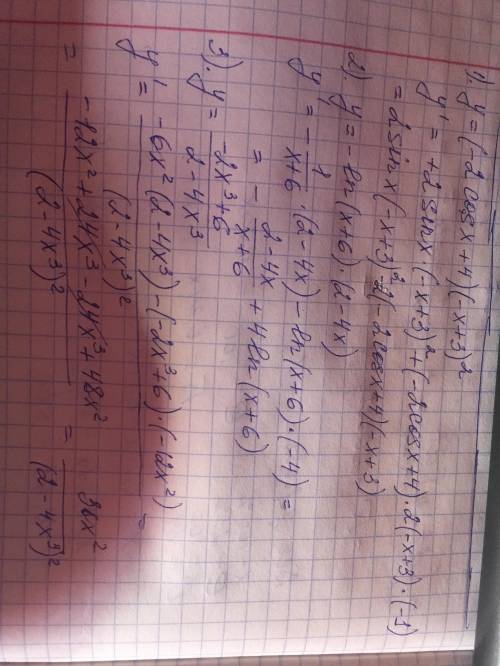 1). y = (-2cosx+4)(-x+3)²
y' = +2sinx(-x+3)²+(-2cosx+4)·2(-x+3)·(-1)
= 2sinx(-x+3)²-2(-2cosx+4)(-x+3)
2). y = -ln(x+6)·(2-4x)
y' = -1/(x+6)·(2-4x)-ln(x+6)·(-4) =
= -(2-4x)/(x+6)+4ln(x+6)
3). y = (-2x³+6)/(2-4x³)
y' = (-6x²(2-4x³)-(-2x³+6)(-12x²))/(2-4x³)² =
= (-12x²+24x³-24x³+48x²)/(2-4x³)² = 36x²/(2-4x³)²